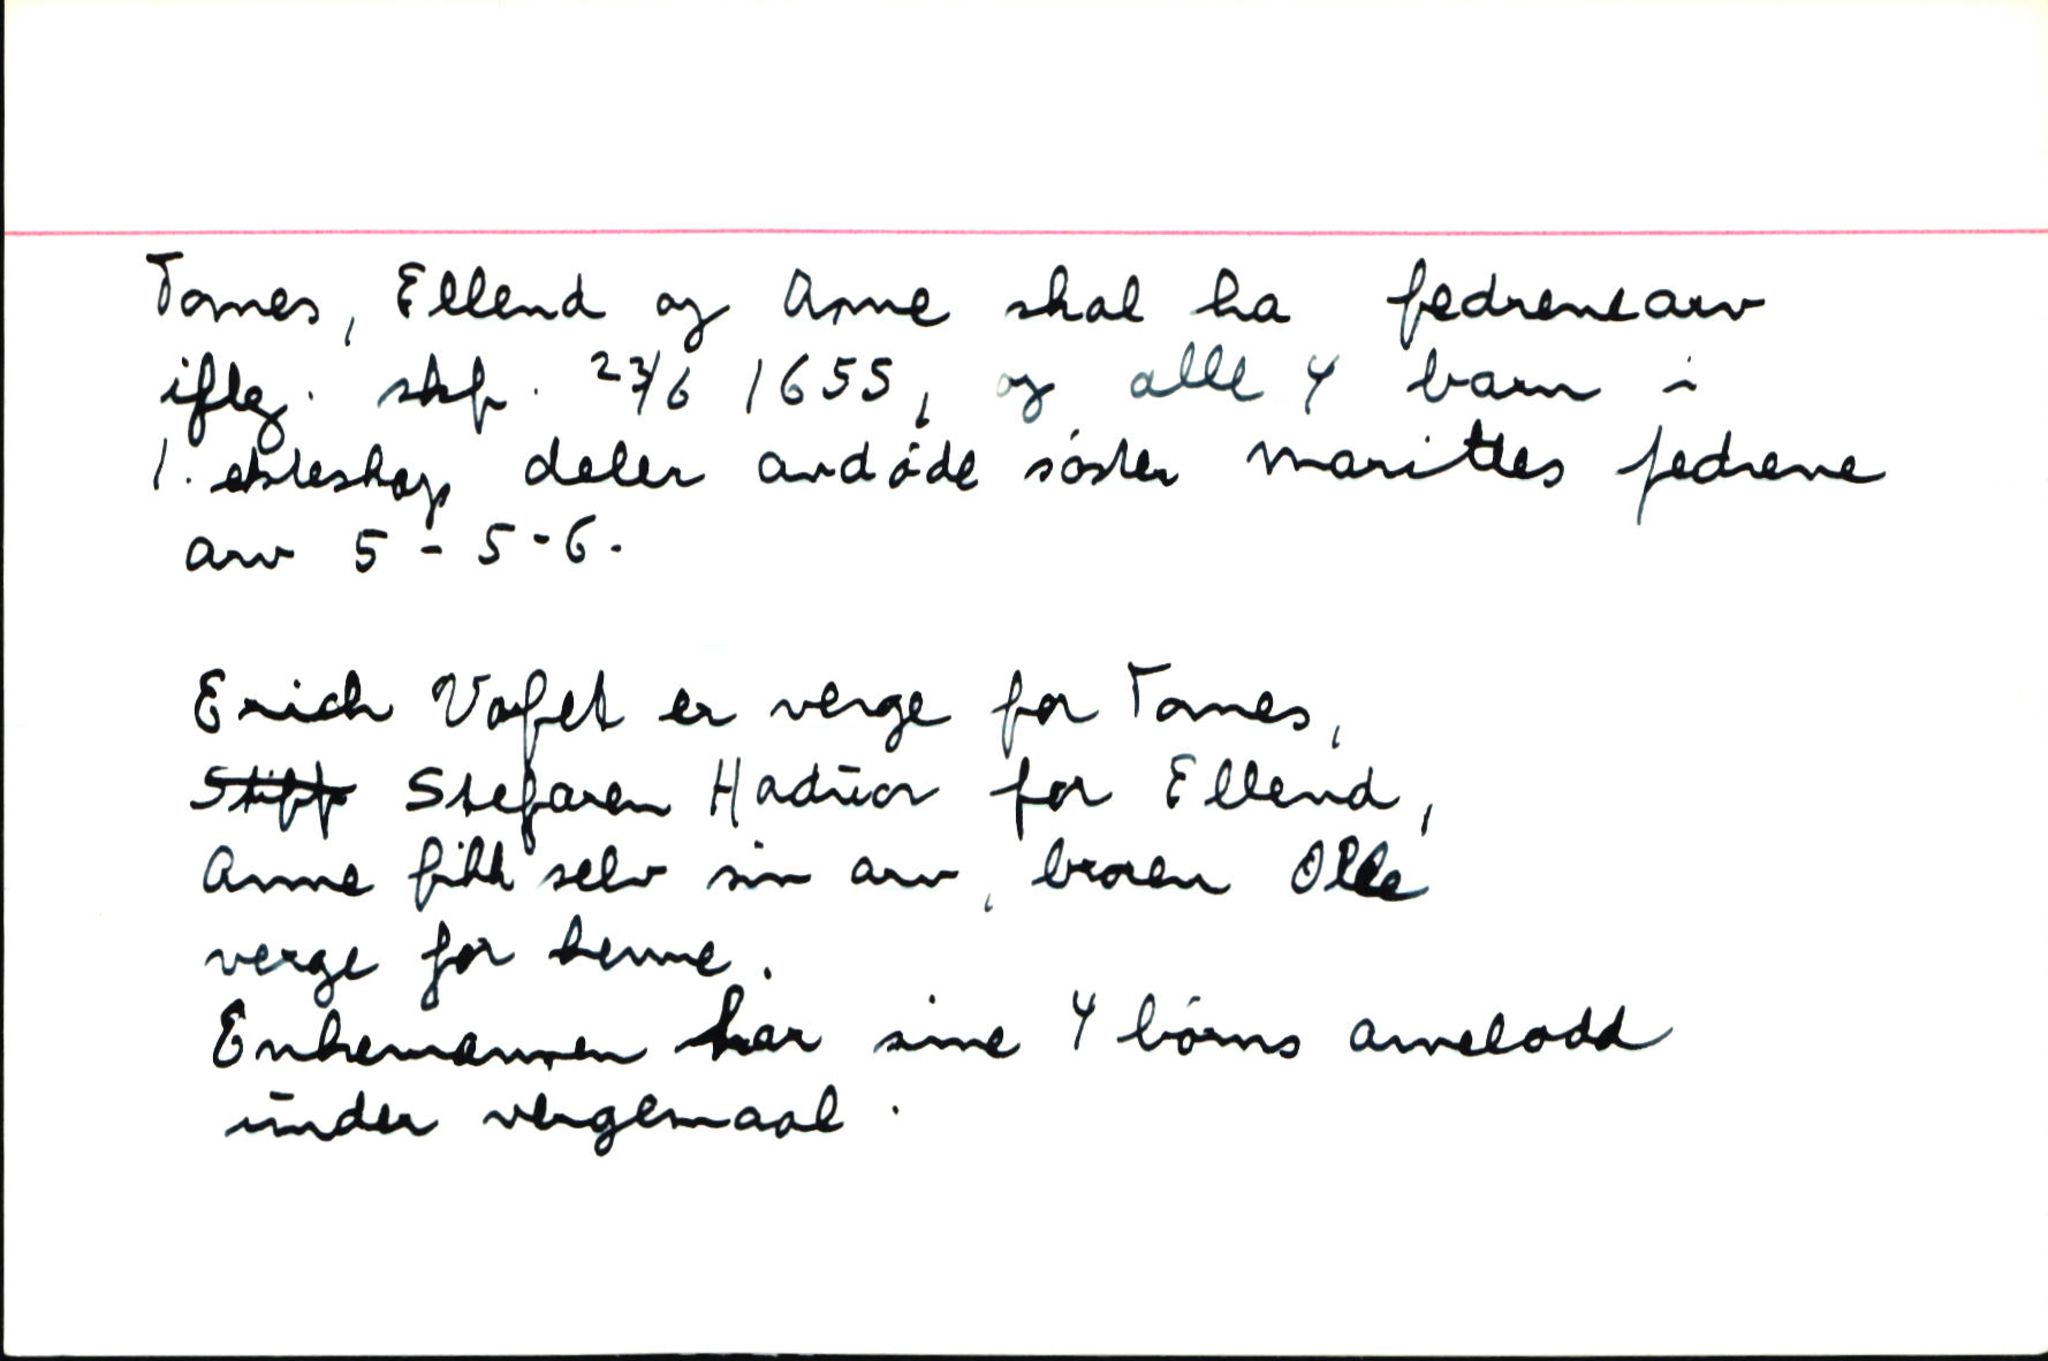 Tomes, Ellend og Anne skal ha fedrenearv
iflg. skf. 23/6 1655, og alle 4 barn i
1. ekteskap deler avdöde söster Marittes fedrene
arv 5 - 5 - 6.
Erich Vofet er verge for Tomes,
Stiff Stefaren Hadūor for Ellend,
Anne fikk selv sin arv, broren Olle
verge for henne.
Enkemannen har sine 4 börns arvelodd
ūnder vergemaal.